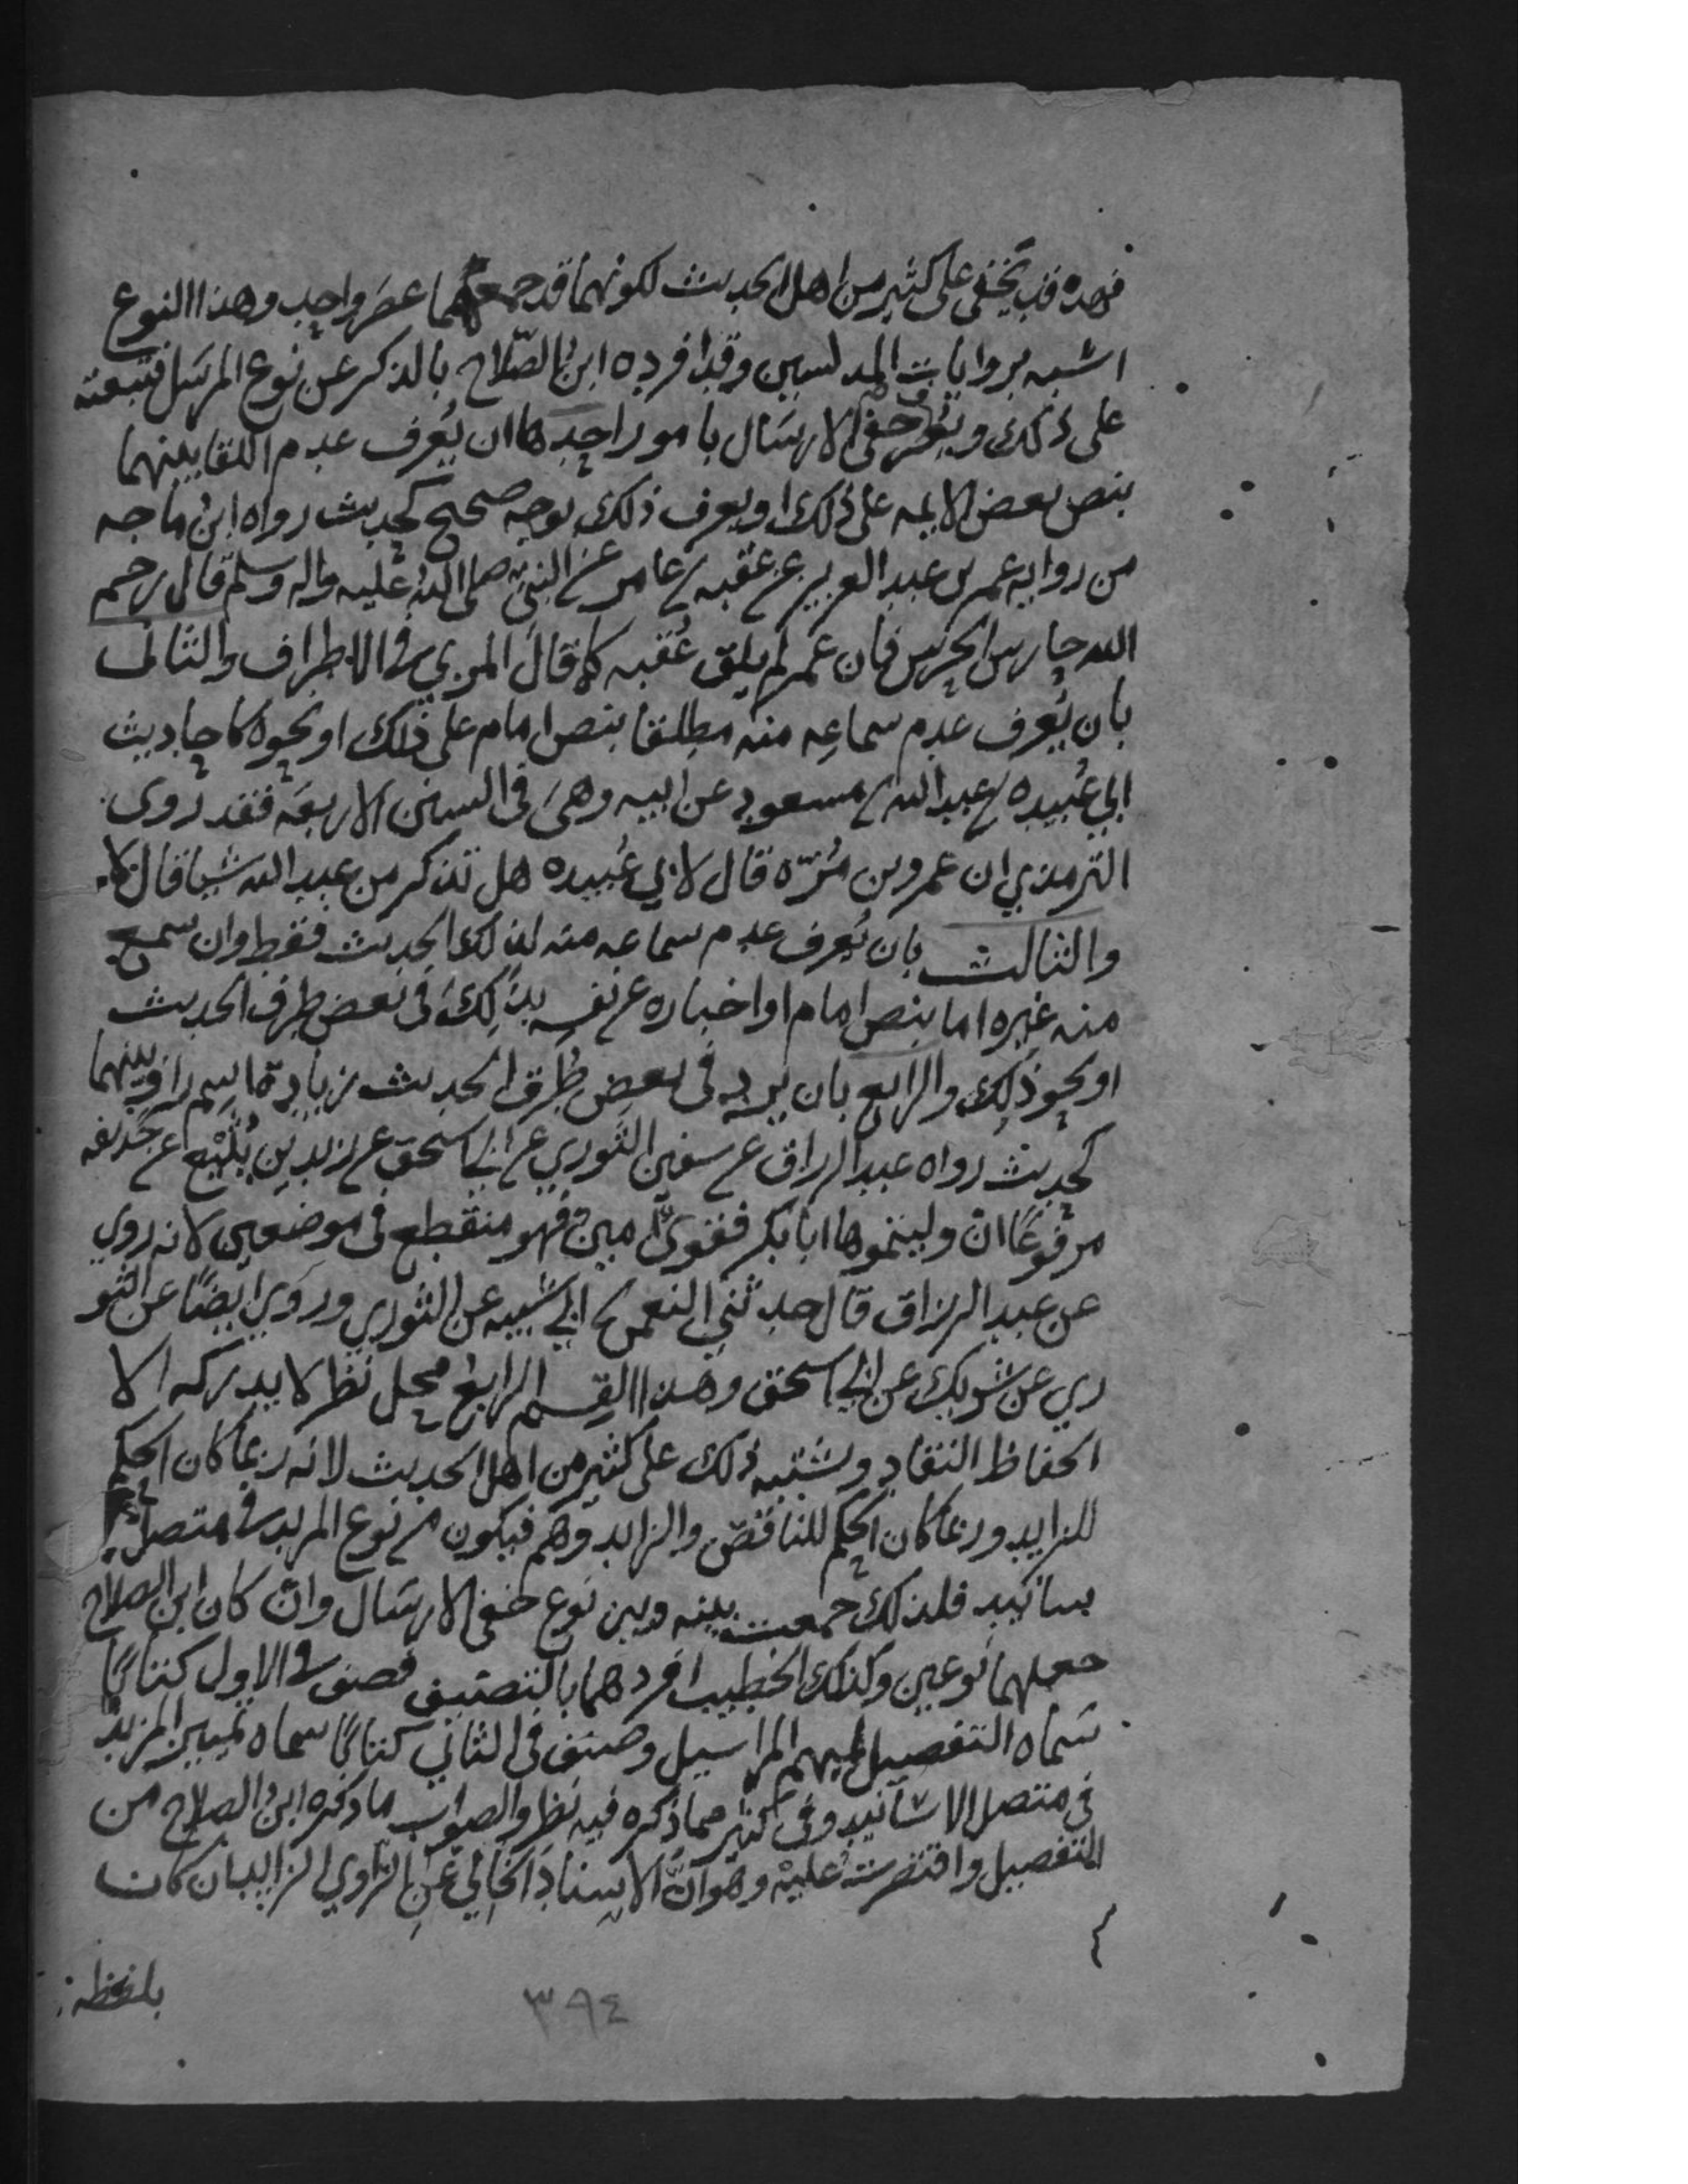 فهذه قد تخفى على كثير من اهل الحديث لكونهما قد جمعهما عصر واحد وهذا النوع
اشبه بروايات المدلسين وقد افرده ابن الصّلاح بالذكر عن نوع المرسل فتبعته
على ذلك ويُعرف خفى الارسَال بامور احدها ان يُعرف عدم اللقا بينهما
بنص بعض الايمه على ذلك او يعرف ذلك بوجه صحيح كحديث رواه ابن ماجه
من روايه عمر بن عبد العزيز عن عقبه بن عامر عن النبي صلى الله عليه واله وسلم قال رحم
الله حارس الحرس فان عمر لم يلق عُقبه كما قال المزي في الاطراف والثانى
بان يُعرف عدم سماعِه منه مطلقا بنص امام على ذلك او نحوه كاحاديث
ابي عُبيده بن عبد الله بن مسعود عن ابيه وهى فى السنن الاربعَه فقد روى
الترمذي ان عمرو بن مُرّه قال لابي عُبيده هل تذكر من عبد الله شيا قال لا
والثالث بان يُعرف عدم سماعه منه لذلك الحديث فقط وان سمع
منه غيره اما بنص امام او اخباره عن نفسه بذلك فى بعض طرق الحديث
او نحو ذلك والرابع بان يرد فى بعض طُرق الحديث زيادة اسم راو بينهما
كحديث رواه عبد الرزاق عن سفين الثوري عن ابي اسحق عن زيد بن يُثَيْع عن حذيفه
مرفوعًا ان وليتموها ابا بكر فقويّ امين فهو منقطع فى موضعين لانه روي
عن عبد الرزاق قال حدثني النعمن بن ابي شيبه عن الثوري وروي ايضًا عن الثو
ري عن شريك عن ابي اسحق وهذا القسم الرابع محل نظر لا يدركه الا
الحفاظ النقاد ويشتبه ذلك على كثير من اهل الحديث لانه ربما كان الحكم
للزايد وربما كان الحكم للناقص والزايد وهم فيكون من نوع المزيد في متصل الا
سانيد فلذلك جمعت بينه وبين نوع خفى الارسَال وان كان ابن الصلاح
جعلهما نوعين وكذلك الخطيب افردهما بالتصنيف فصنف في الاول كتابًا
سَماه التفصيل لمبهم المراسيل وصنف فى الثاني كتابًا سماه تمييز المزيد
في متصل الاسَانيد وفى كثير مما ذكره فيه نظر والصواب ما ذكره ابن الصلاح من
التفصيل واقتصرت عليه وهو انّ الاسنادَ الخالي عن الراوي الزايد ان كان
بلفظه
٣٩٤